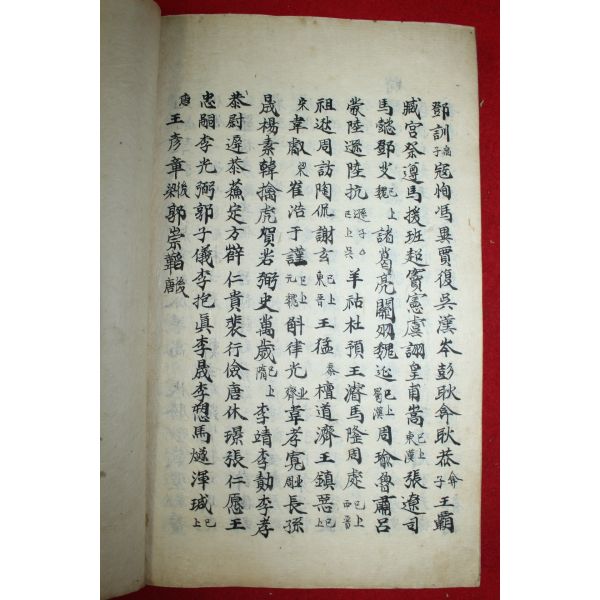 鄧訓禹子寇恂馮異賈復吳漢岑彭耿弇耿恭弇子王霸
臧宮祭遵馬援班超竇憲虞詡皇甫嵩已上東漢張遼司
馬懿鄧艾已上魏諸葛亮關羽魏延已上蜀漢周瑜魯肅呂
蒙陸遜陸抗遜子已上吳羊祜杜預王濬馬隆周處已上西晉
祖逖周訪陶侃謝玄已上東晉王猛秦檀道濟王鎮惡已上
宋韋叡梁崔浩于謹已上元魏斛律光北齊韋孝寬北周長孫
晟楊素韓擒虎賀若弼史萬歲已上隋李靖李勣李孝
恭尉遲恭蘇定方薛仁貴裴行儉唐休璟張仁愿王
忠嗣李光弼郭子儀李抱眞李晟李愬馬燧渾瑊已上
唐王彥章後梁郭崇韜後唐